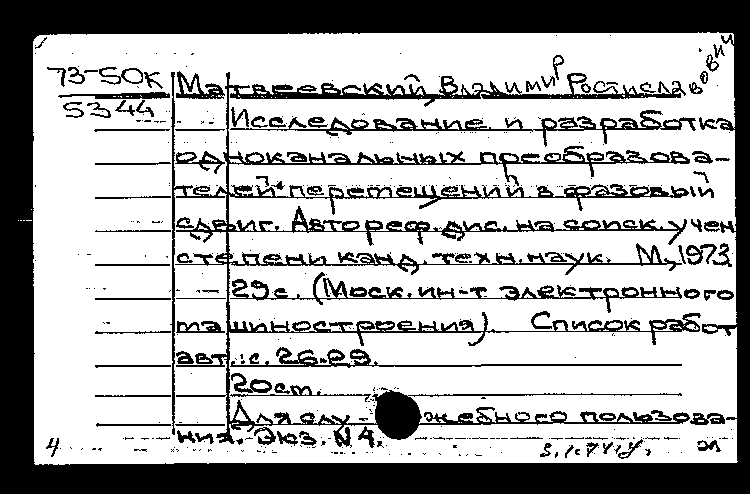 73-50к Матвеевский, Владимир Ростиславович
5344
Исследование и разработка
одноканальных преобразова-
телей перемещений в фазовый
сдвиг. Автореф. дис. на соиск. учен
степени канд. техн. наук. М., 1973
29с. (Моск. ин-т электронного
машиностроения). Список работ
авт.: с. 26-29.
20cm.
Для слу-жебного пользова-
ния. Экз. N4.
4